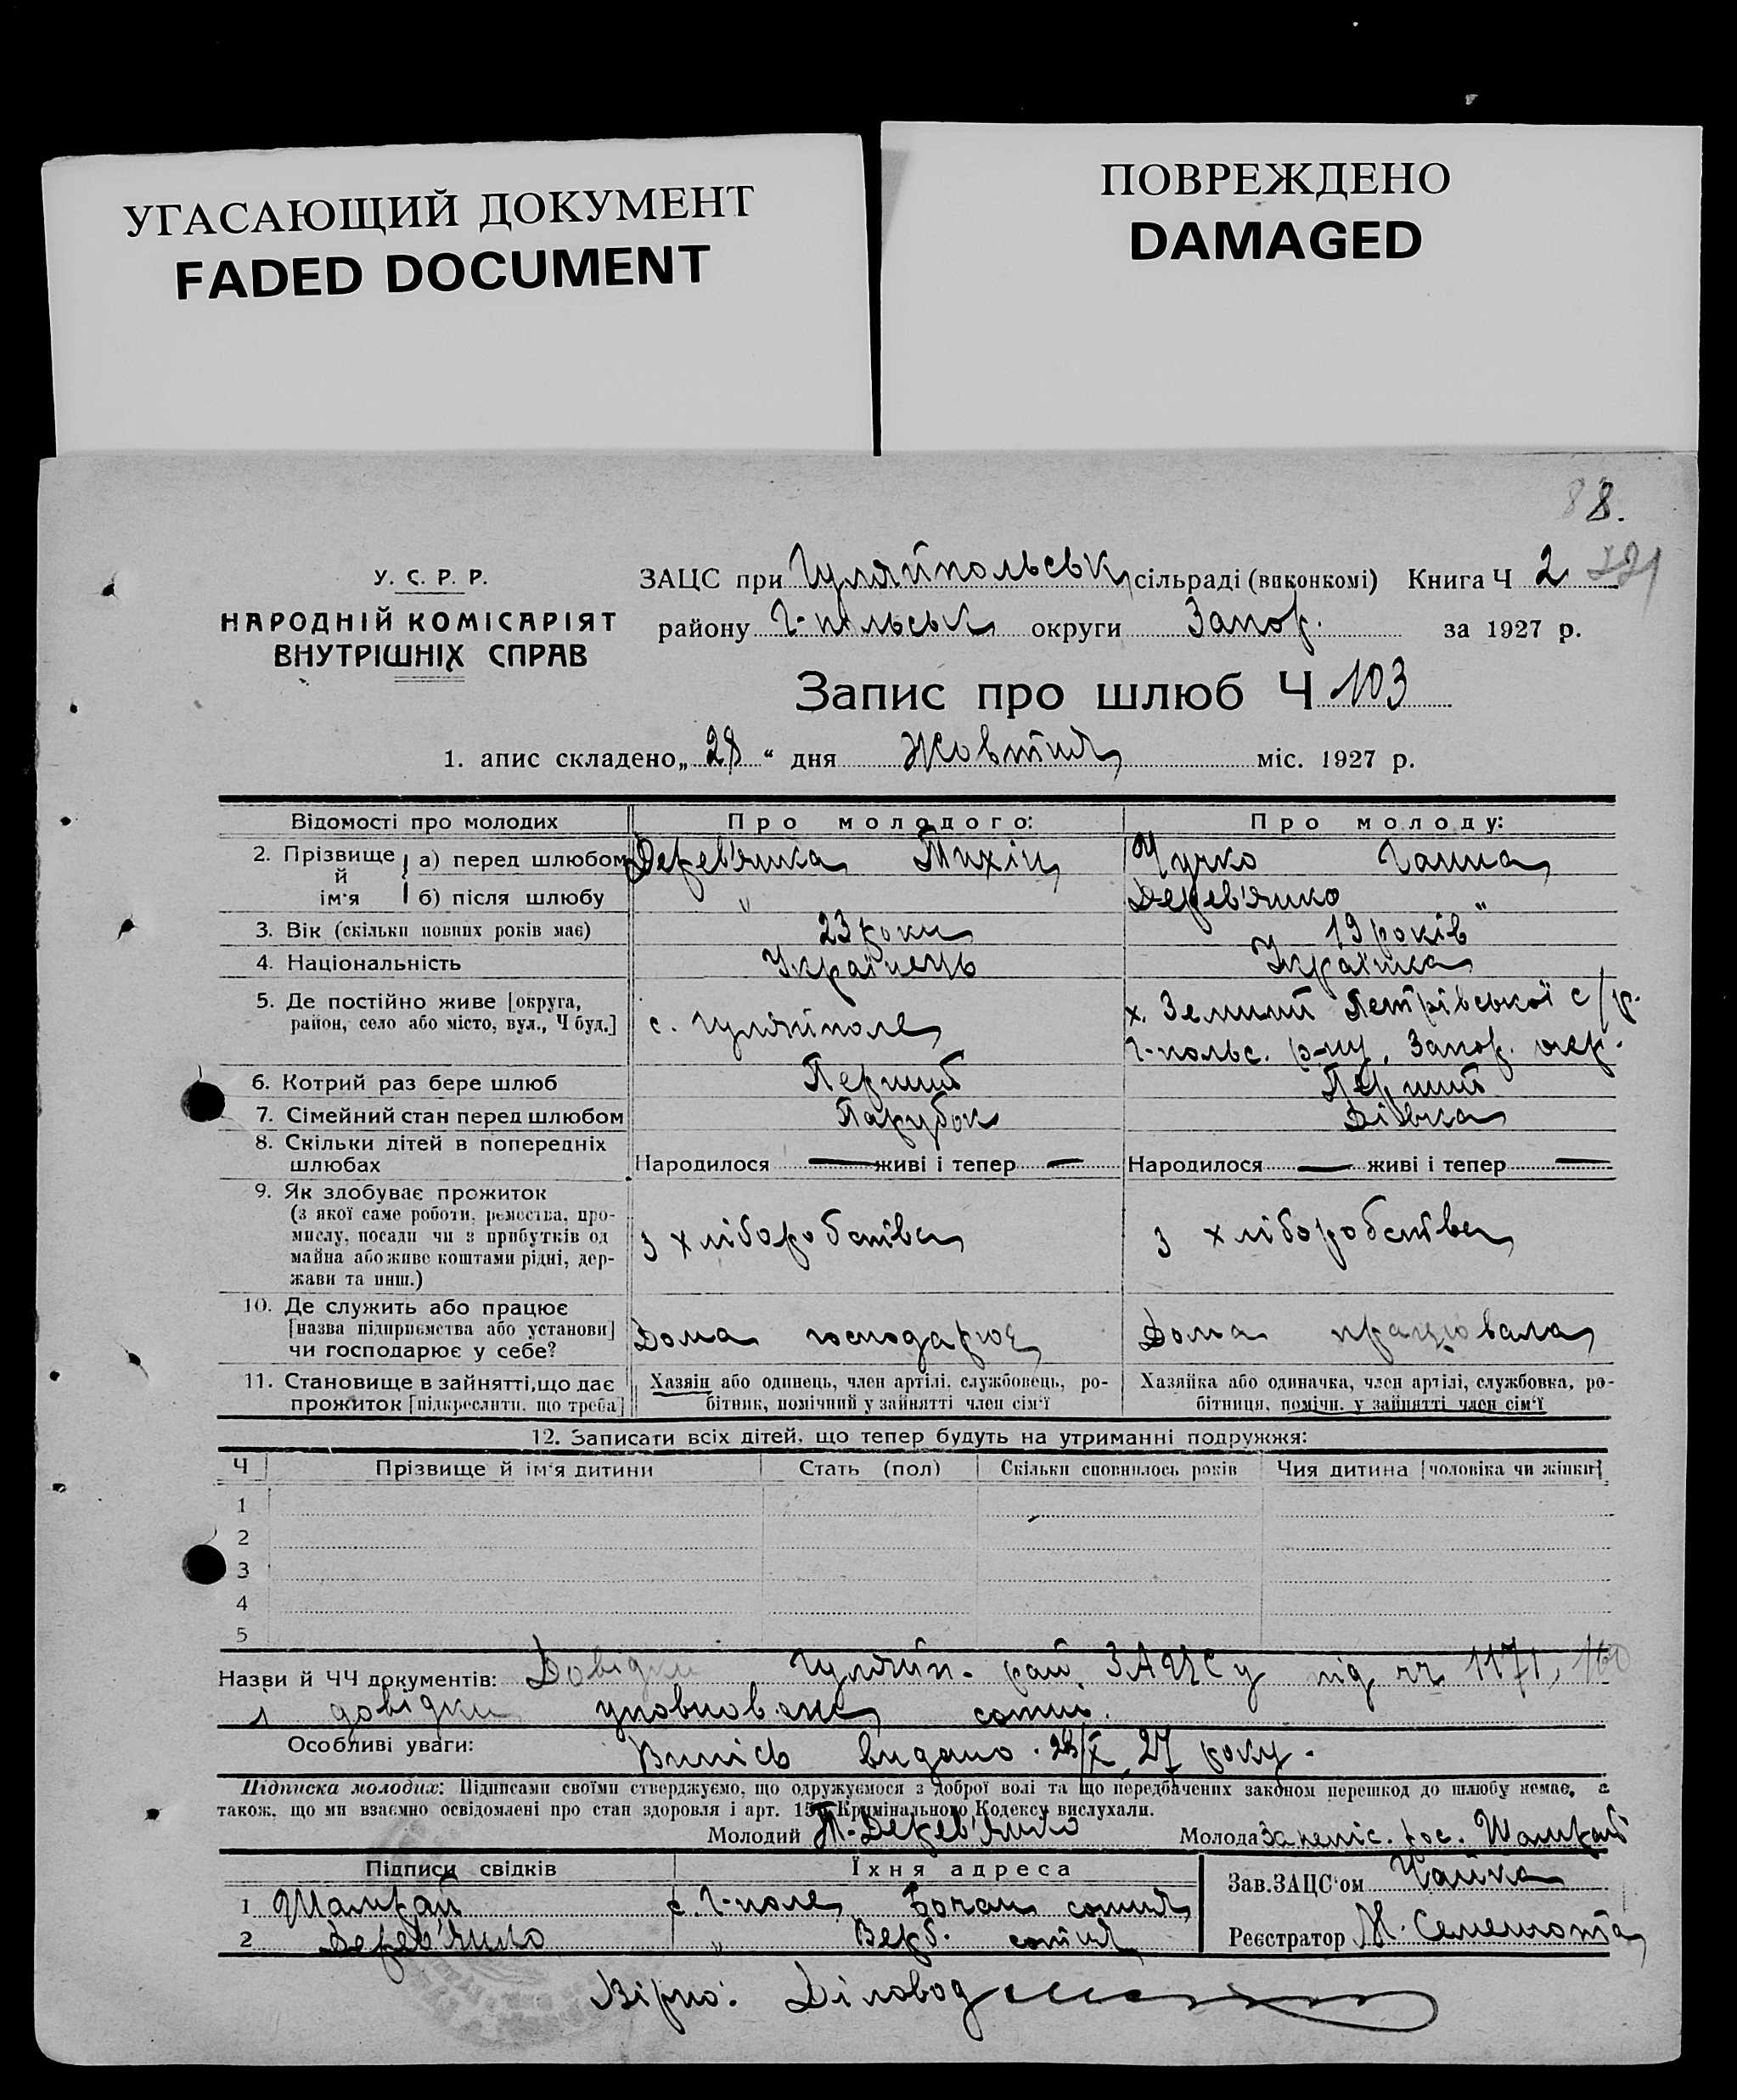 УГАСАЮЩИЙ ДОКУМЕНТ
FADED DOCUMENT
ПОВРЕЖДЕНО
DAMAGED
88.
У. С. Р. Р.
НАРОДНІЙ КОМІСАРІЯТ
ВНУТРІШНІХ СПРАВ
ЗАЦС при Гуляйпольськ сільраді (виконкомі) Книга Ч 2
району Г-польськ округи Запор. за 1927 р.
Запис про шлюб Ч 103
1. апис складено „28“ дня Жовтня міс. 1927 р.
Відомості про молодих Про молодого: Про молоду:
2. Прізвище й ім'я а) перед шлюбом Дерев'янко Тихін Чучко Ганна
б) після шлюбу " Дерев'янко "
3. Вік (скільки повних років має) 23 роки 19 років
4. Національність Українець Українка
5. Де постійно живе [округа, х. Зелений Петрівської с/р.
район, село або місто, вул., Ч буд.] с. Гуляйполе Г-польс. р-ну, Запор. окр.
6. Котрий раз бере шлюб Перший Перший
7. Сімейний стан перед шлюбом Парубок Дівка
8. Скільки дітей в попередніх
шлюбах Народилося — живі і тепер — Народилося — живі і тепер —
9. Як здобуває прожиток
(з якої саме роботи, ремества, про-
мислу, посади чи з прибутків од з хліборобства з хліборобства
майна або живе коштами рідні, дер-
жави та инш.)
10. Де служить або працює
[назва підприємства або установи] Дома господарює Дома працювала
чи господарює у себе?
11. Становище в зайнятті, що дає Хазяін або одинець, член артілі, службовець, ро- Хазяйка або одиначка, член артілі, службовка, ро-
прожиток [підкреслити, що треба] бітник, помічний у зайнятті член сім'ї бітниця, помічн. у зайнятті член сім'ї
12. Записати всіх дітей, що тепер будуть на утриманні подружжя:
Ч Прізвище й ім'я дитини Стать (пол) Скільки сповнилось років Чия дитина [чоловіка чи жінки]
1
2
3
4
5
Назви й ЧЧ документів: Довідки Гуляйп. рай. ЗАЦСу під чч 1171,
і довідки уповноваж сотні.
Особливі уваги: Випісь видано 28/X 27 року.
Підписка молодих: Підписами своїми стверджуємо, що одружуємося з доброї волі та що передбачених законом перешкод до шлюбу немає, а
також, що ми взаємно освідомлені про стан здоровля і арт. 15 Кримінального Кодексу вислухали.
Молодий Т. Дерев'янко Молода За непіс. рос.
Підписи свідків Їхня адреса Зав. ЗАЦС'ом Чайка
1 с. Г-поле, Бочан сотня
2 Дерев'янко " Верб. сотня Реєстратор
Вірно: Діловод